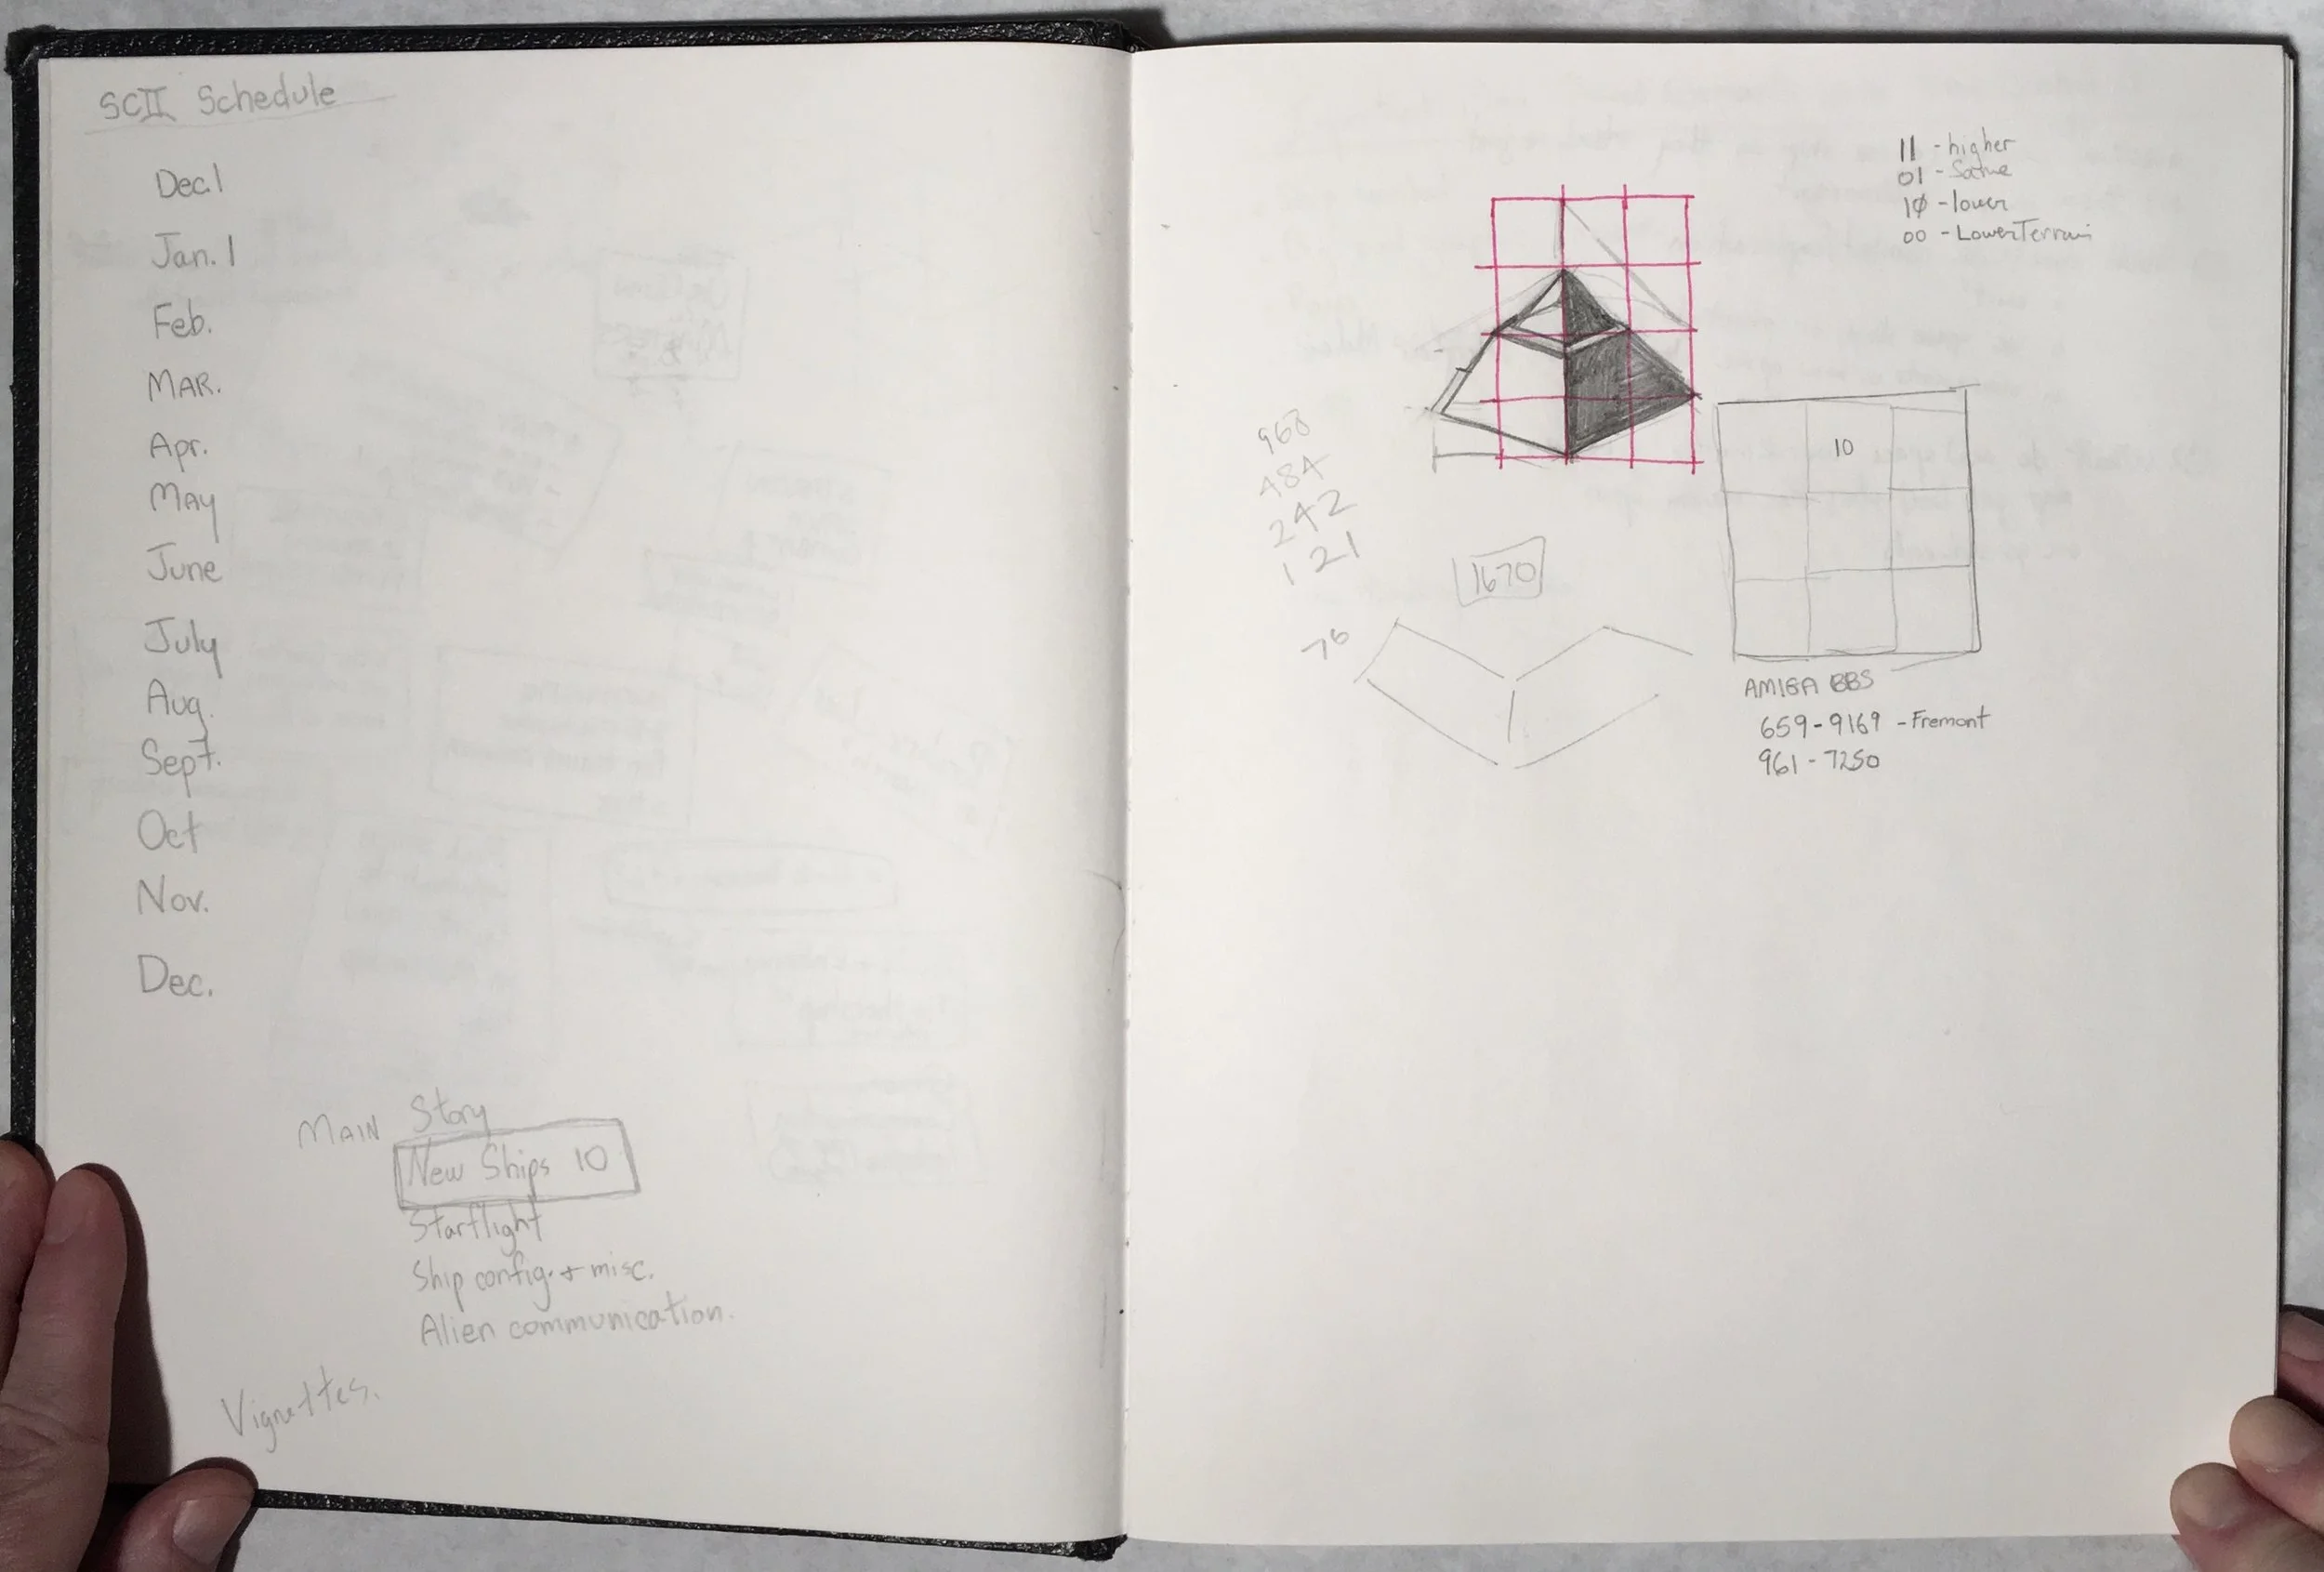 SCII Schedule
Dec. 1
Jan. 1
Feb.
MAR.
Apr.
May
June
July
Aug.
Sept.
Oct
Nov.
Dec.
MAIN Story
New Ships 10
Starflight
Ship config. + misc.
Alien communication.
Vignettes.
11 - higher
01 - Same
10 - lower
00 - Lower Terrain
968
484
242
121
76
1670
10
AMIGA BBS
659-9169 - Fremont
961-7250